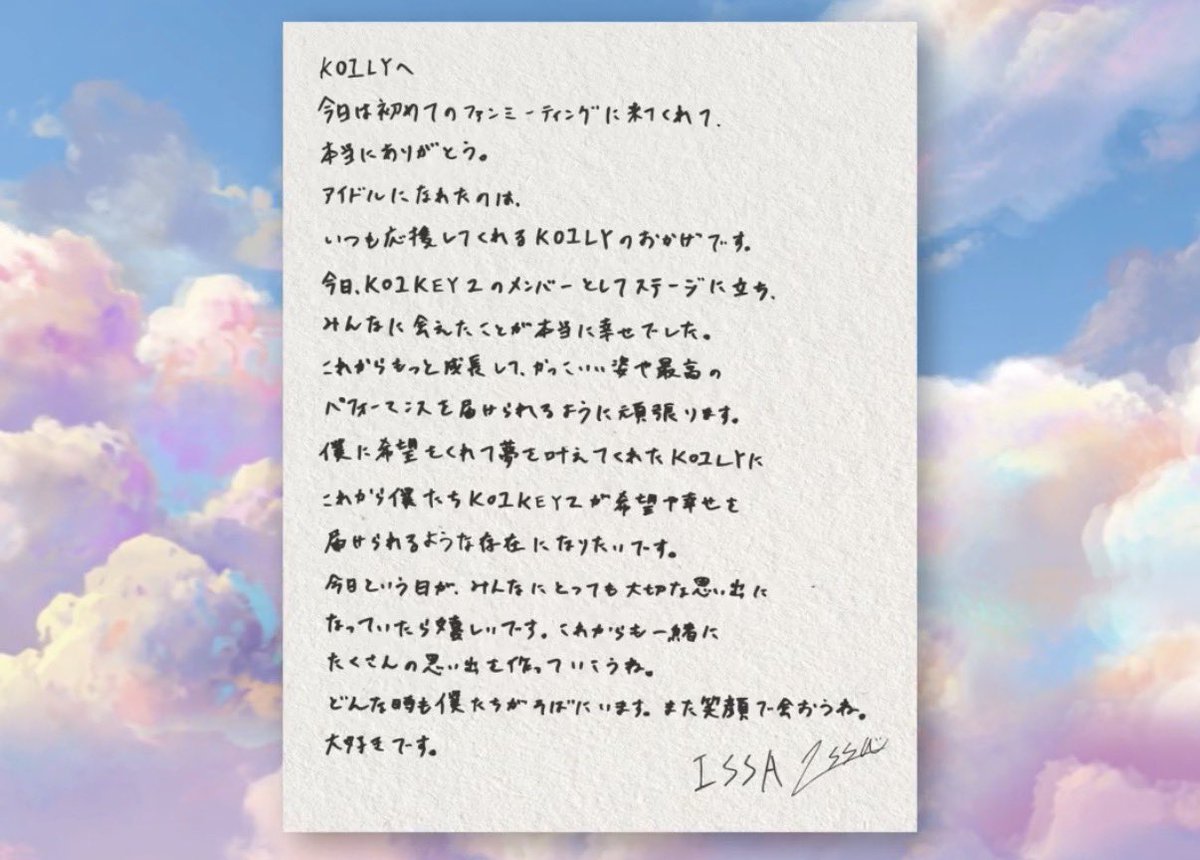 KO1LYへ
今日は初めてのファンミーティングに来てくれて、
本当にありがとう。
アイドルになれたのは、
いつも応援してくれるKO1LYのおかげです。
今日、KO1KEYZのメンバーとしてステージに立ち、
みんなに会えたことが本当に幸せでした。
これからもっと成長して、かっこいい姿や最高の
パフォーマンスを届けられるように頑張ります。
僕に希望をくれて夢を叶えてくれたKO1LYに
これから僕たちKO1KEYZが希望や幸せを
届けられるような存在になりたいです。
今日という日が、みんなにとっても大切な思い出に
なっていたら嬉しいです。これからも一緒に
たくさんの思い出を作っていこうね。
どんな時も僕たちがそばにいます。また笑顔で会おうね。
大好きです。
ISSA Issa